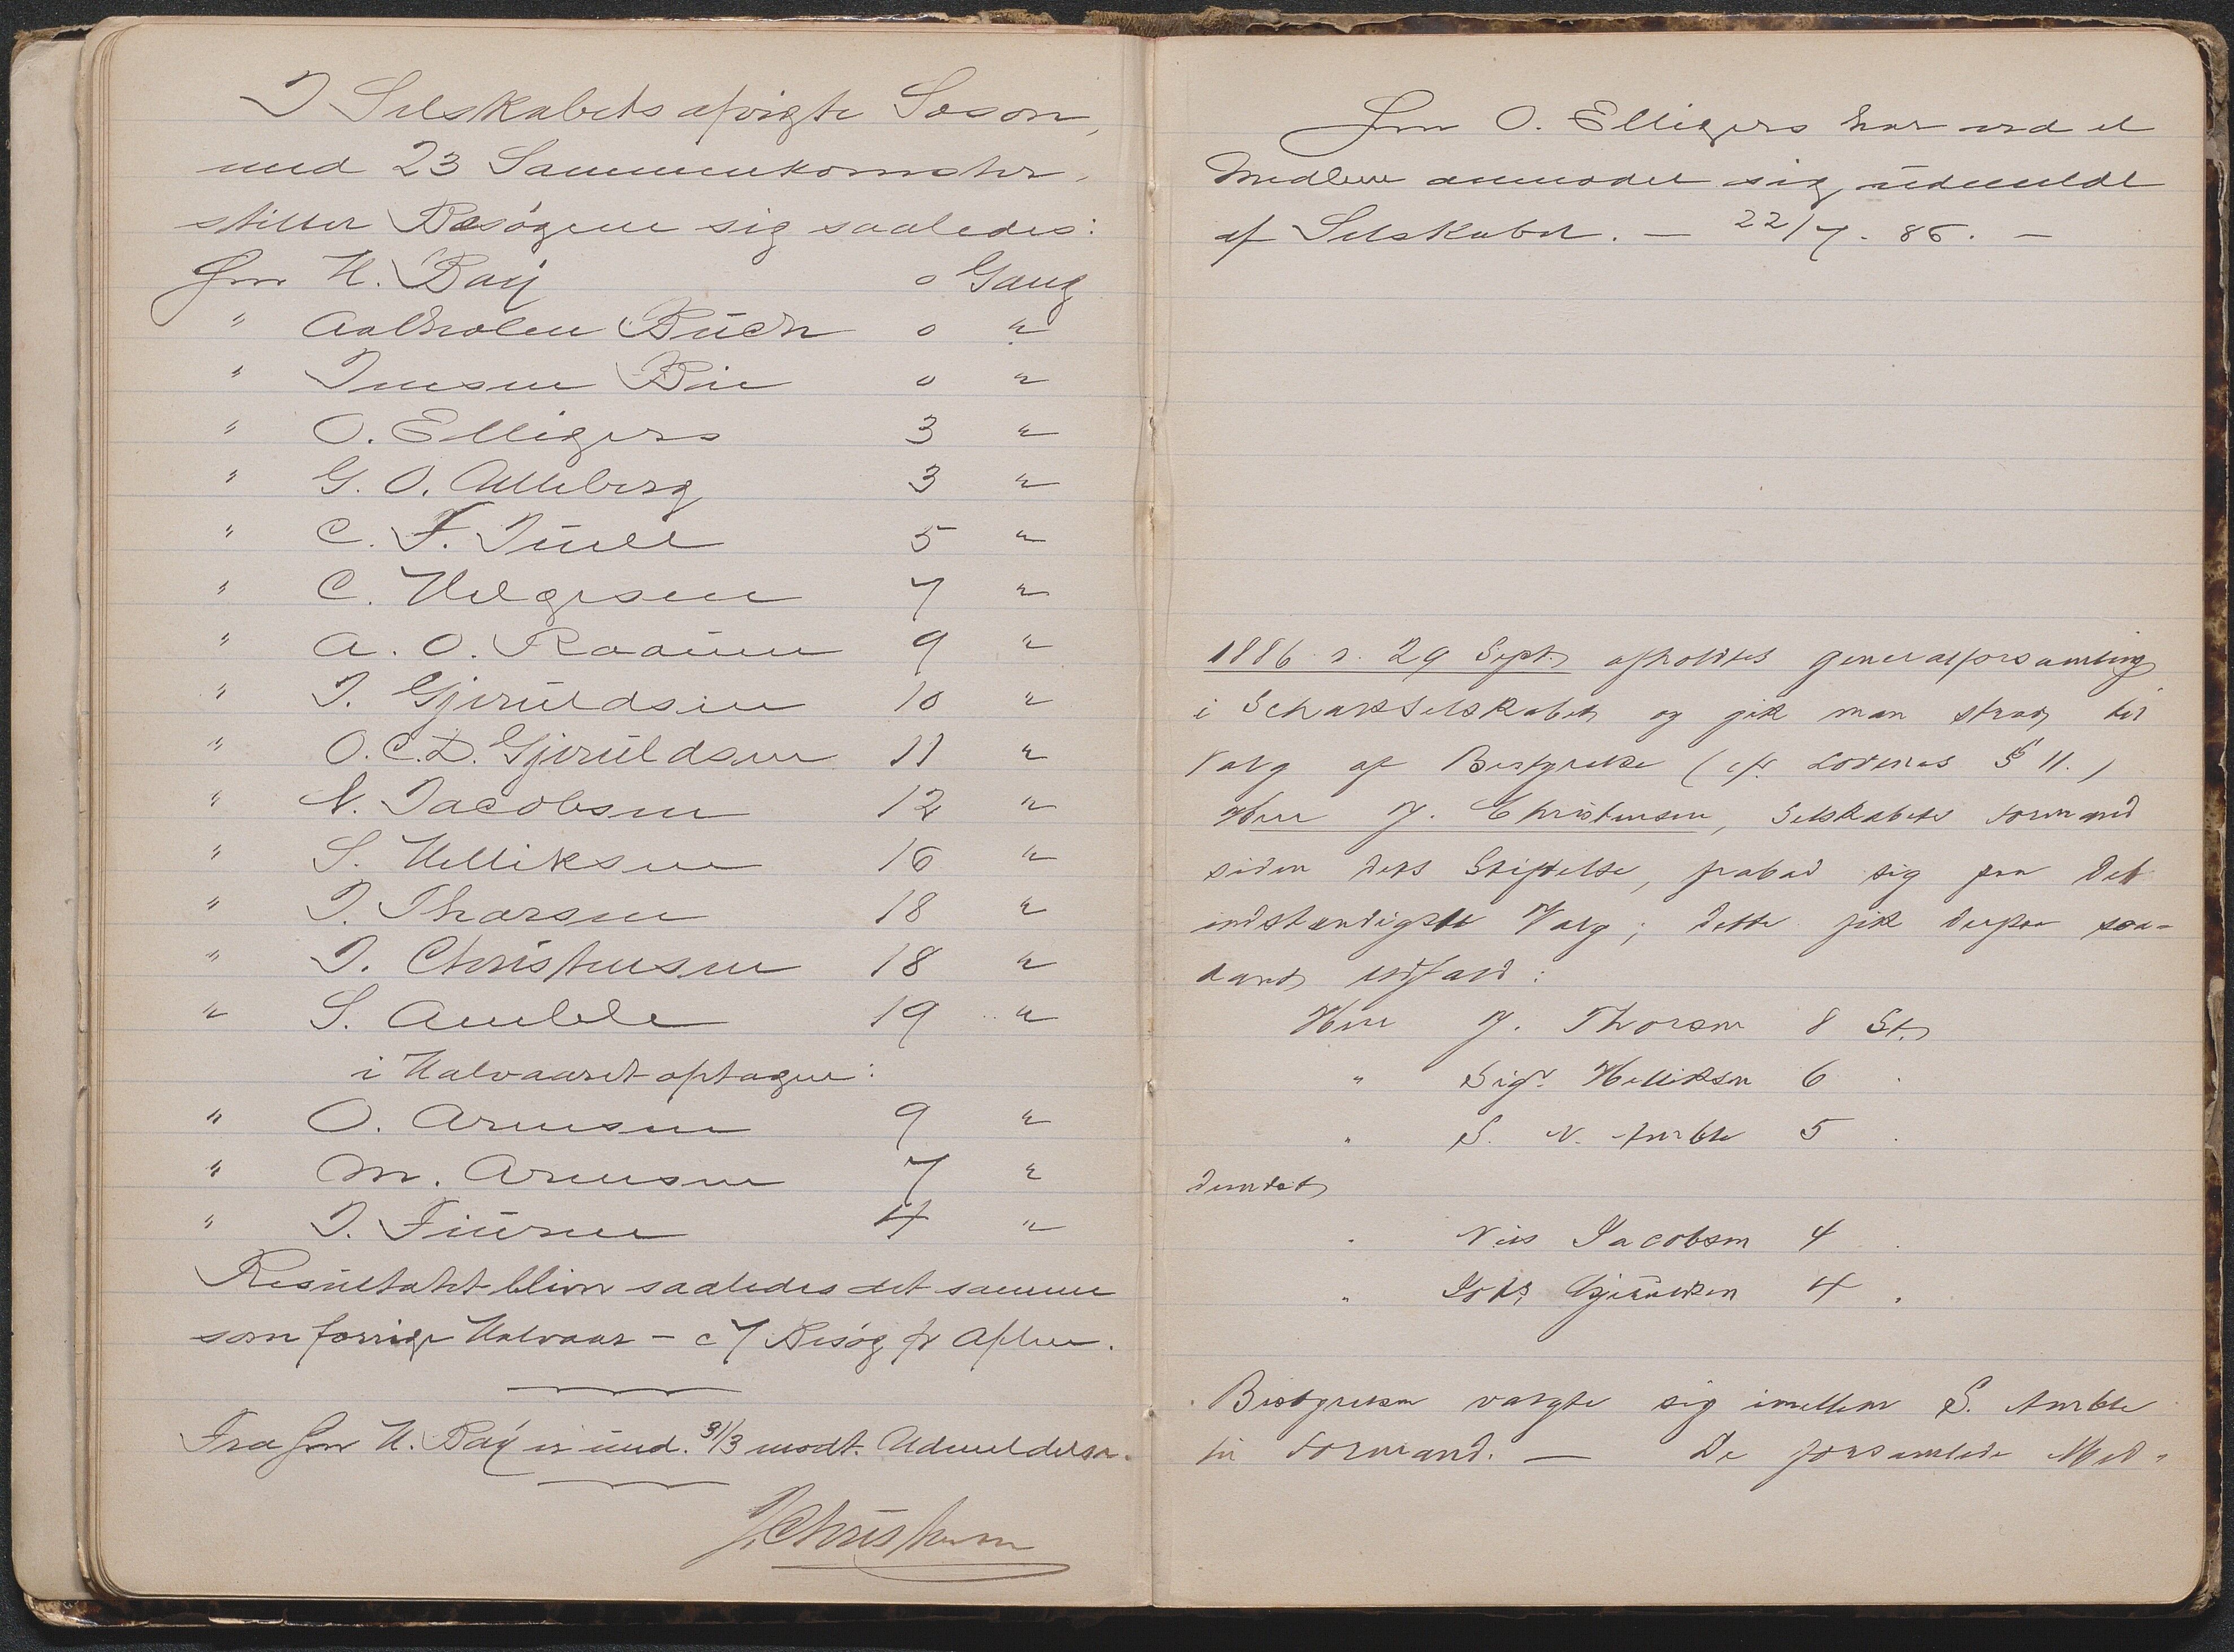 I Selskabets afvigte Sæson,
med 23 Sammenkomster,
stiller Besøgene sig saaledes:
Hrr H. Bay 0 Gang
" Aalholm Buch 0 "
" Jensen Bie 0 "
" O. Elligers 3 "
" G. O. Ulleberg 3 "
" C. F. Juell 5 "
" C. Helgesen 7 "
" A. O. Raaum 9 "
" J. Gjeruldsen 10 "
" O. C. D. Gjeruldsen 11 "
" N. Jacobsen 12 "
" S. Helliksen 16 "
" J. Thorsen 18 "
" J. Christensen 18 "
" S. Amble 19 "
i Halvaaret optagne:
" O. Arnesen 9 "
" M. Arnesen 7 "
" J. Iversen 4 "
Resultatet bliver saaledes det samme
som forrige Halvaar - c 7 Besøg pr Aften.
Fra Hrr H. Bay er und. 31/3 modt. Udmeldelse.
J. Christensen
Hrr O. Elligers har ved et
Medlem anmodet sig udmeldt
af Selskabet. — 22/7. 86. —
1886 d. 29 Sept. afholdtes generalforsamling
i Schakselskabet og gik man strax til
Valg af Bestyrelse (cfr. Lovenes § 11.)
Herr J. Christensen, Selskabets Formand
siden dets Stiftelse, frabad sig paa det
indstændigste Valg; dette fik derpaa saa-
dant Udfald:
Herr J. Thorsen 8 St.
" Sigv. Helliksen 6 "
" S. N. Amble 5 "
dernæst
" Nils Jacobsen 4 "
" Gjeruldsen 4 "
Bestyrelsen valgte sig imellem S. Amble
til Formand. — De forsamlede Med-